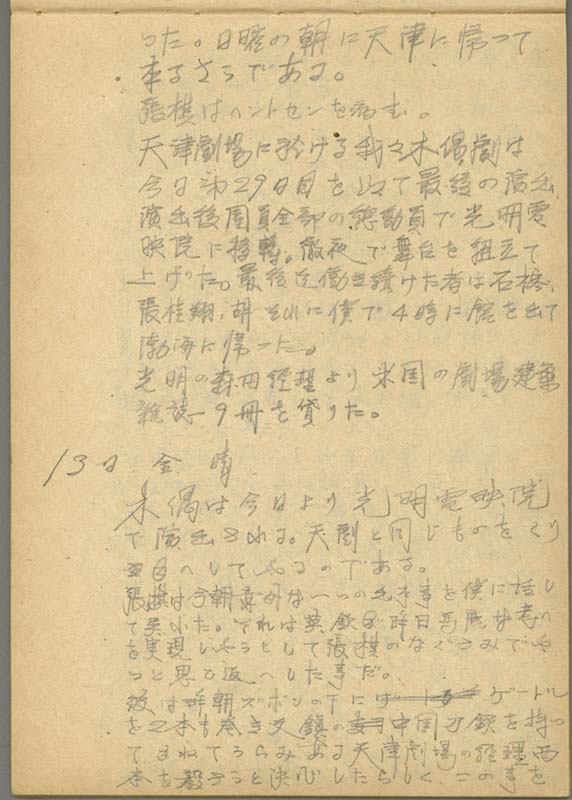 った。日曜の朝に天津に帰つて
来るさうである。
張棋はヘントセンを病む。
天津劇場に於ける我々木偶劇は
今日第29日目を以て最後の演出
演出後團員全部の総動員で光明電
映院に移轉。徹夜で舞台を組立て
上げた。最後迄働き續けた者は石橋、
張桂翔、胡それに僕で4時に館を出て
渤海に帰った。
光明の森田経理より米国の劇場建築
雑誌9冊を貸りた。
13日 金 晴
木偶は今日より光明電映院
で演出される。天劇と同じものをくり
かへしてやるのである。
張棋は今朝意外な一つの出来事を僕に話し
て笑った。それは英欽が昨日馬鹿な考へ
を実現しやうとして張棋のなぐさみでや
っと思ひ返へした事だ。
彼は昨朝ズボンの下に ゲートル
を2本も巻き文鎮の 中国刀 を持つ
てかねてうらみある天津劇場の経理西
本を殺さうと決心したらしく、この事を